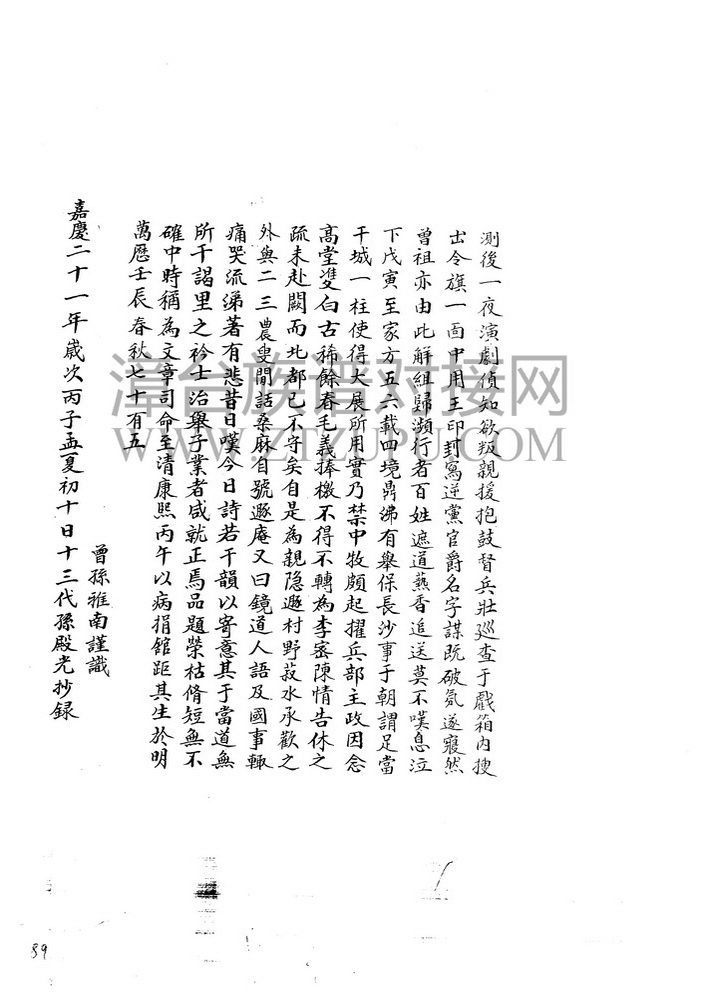 測後一夜演劇偵知欲叛親援抱鼓督兵壯廵查于戲箱内搜
出令旗一面中用王印封寫逆黨官爵名字謀既破氣遂寢然
曾祖亦由此解組歸瀕行者百姓遮道爇香追送莫不嘆息泣
下戊寅至家方五六載四境鼎沸有舉保長沙事于朝謂足當
干城一柱使得大展所用實乃禁中牧頗起擢兵部主政因念
高堂雙白古稀餘春毛義捧檄不得不轉為李密陳情告休之
疏未赴闕而北都已不守矣自是為親隐遯村野菽水承歡之
外與二三農叟閒話桑麻自號遯庵又曰鏡道人語及國事輙
痛哭流涕著有悲昔日嘆今日詩若干韻以寄意其于當道無
所干謁里之衿士治舉子業者咸就正焉品題榮枯脩短無不
確中時稱為文章司命至清康熙丙午以病捐館距其生於明
萬曆壬辰春秋七十有五
曾孫雅南謹識
嘉慶二十一年歲次丙子孟夏初十日十三代孫殿光抄録
漳台族谱对接网
WWW.ZTZUPU.COM
89